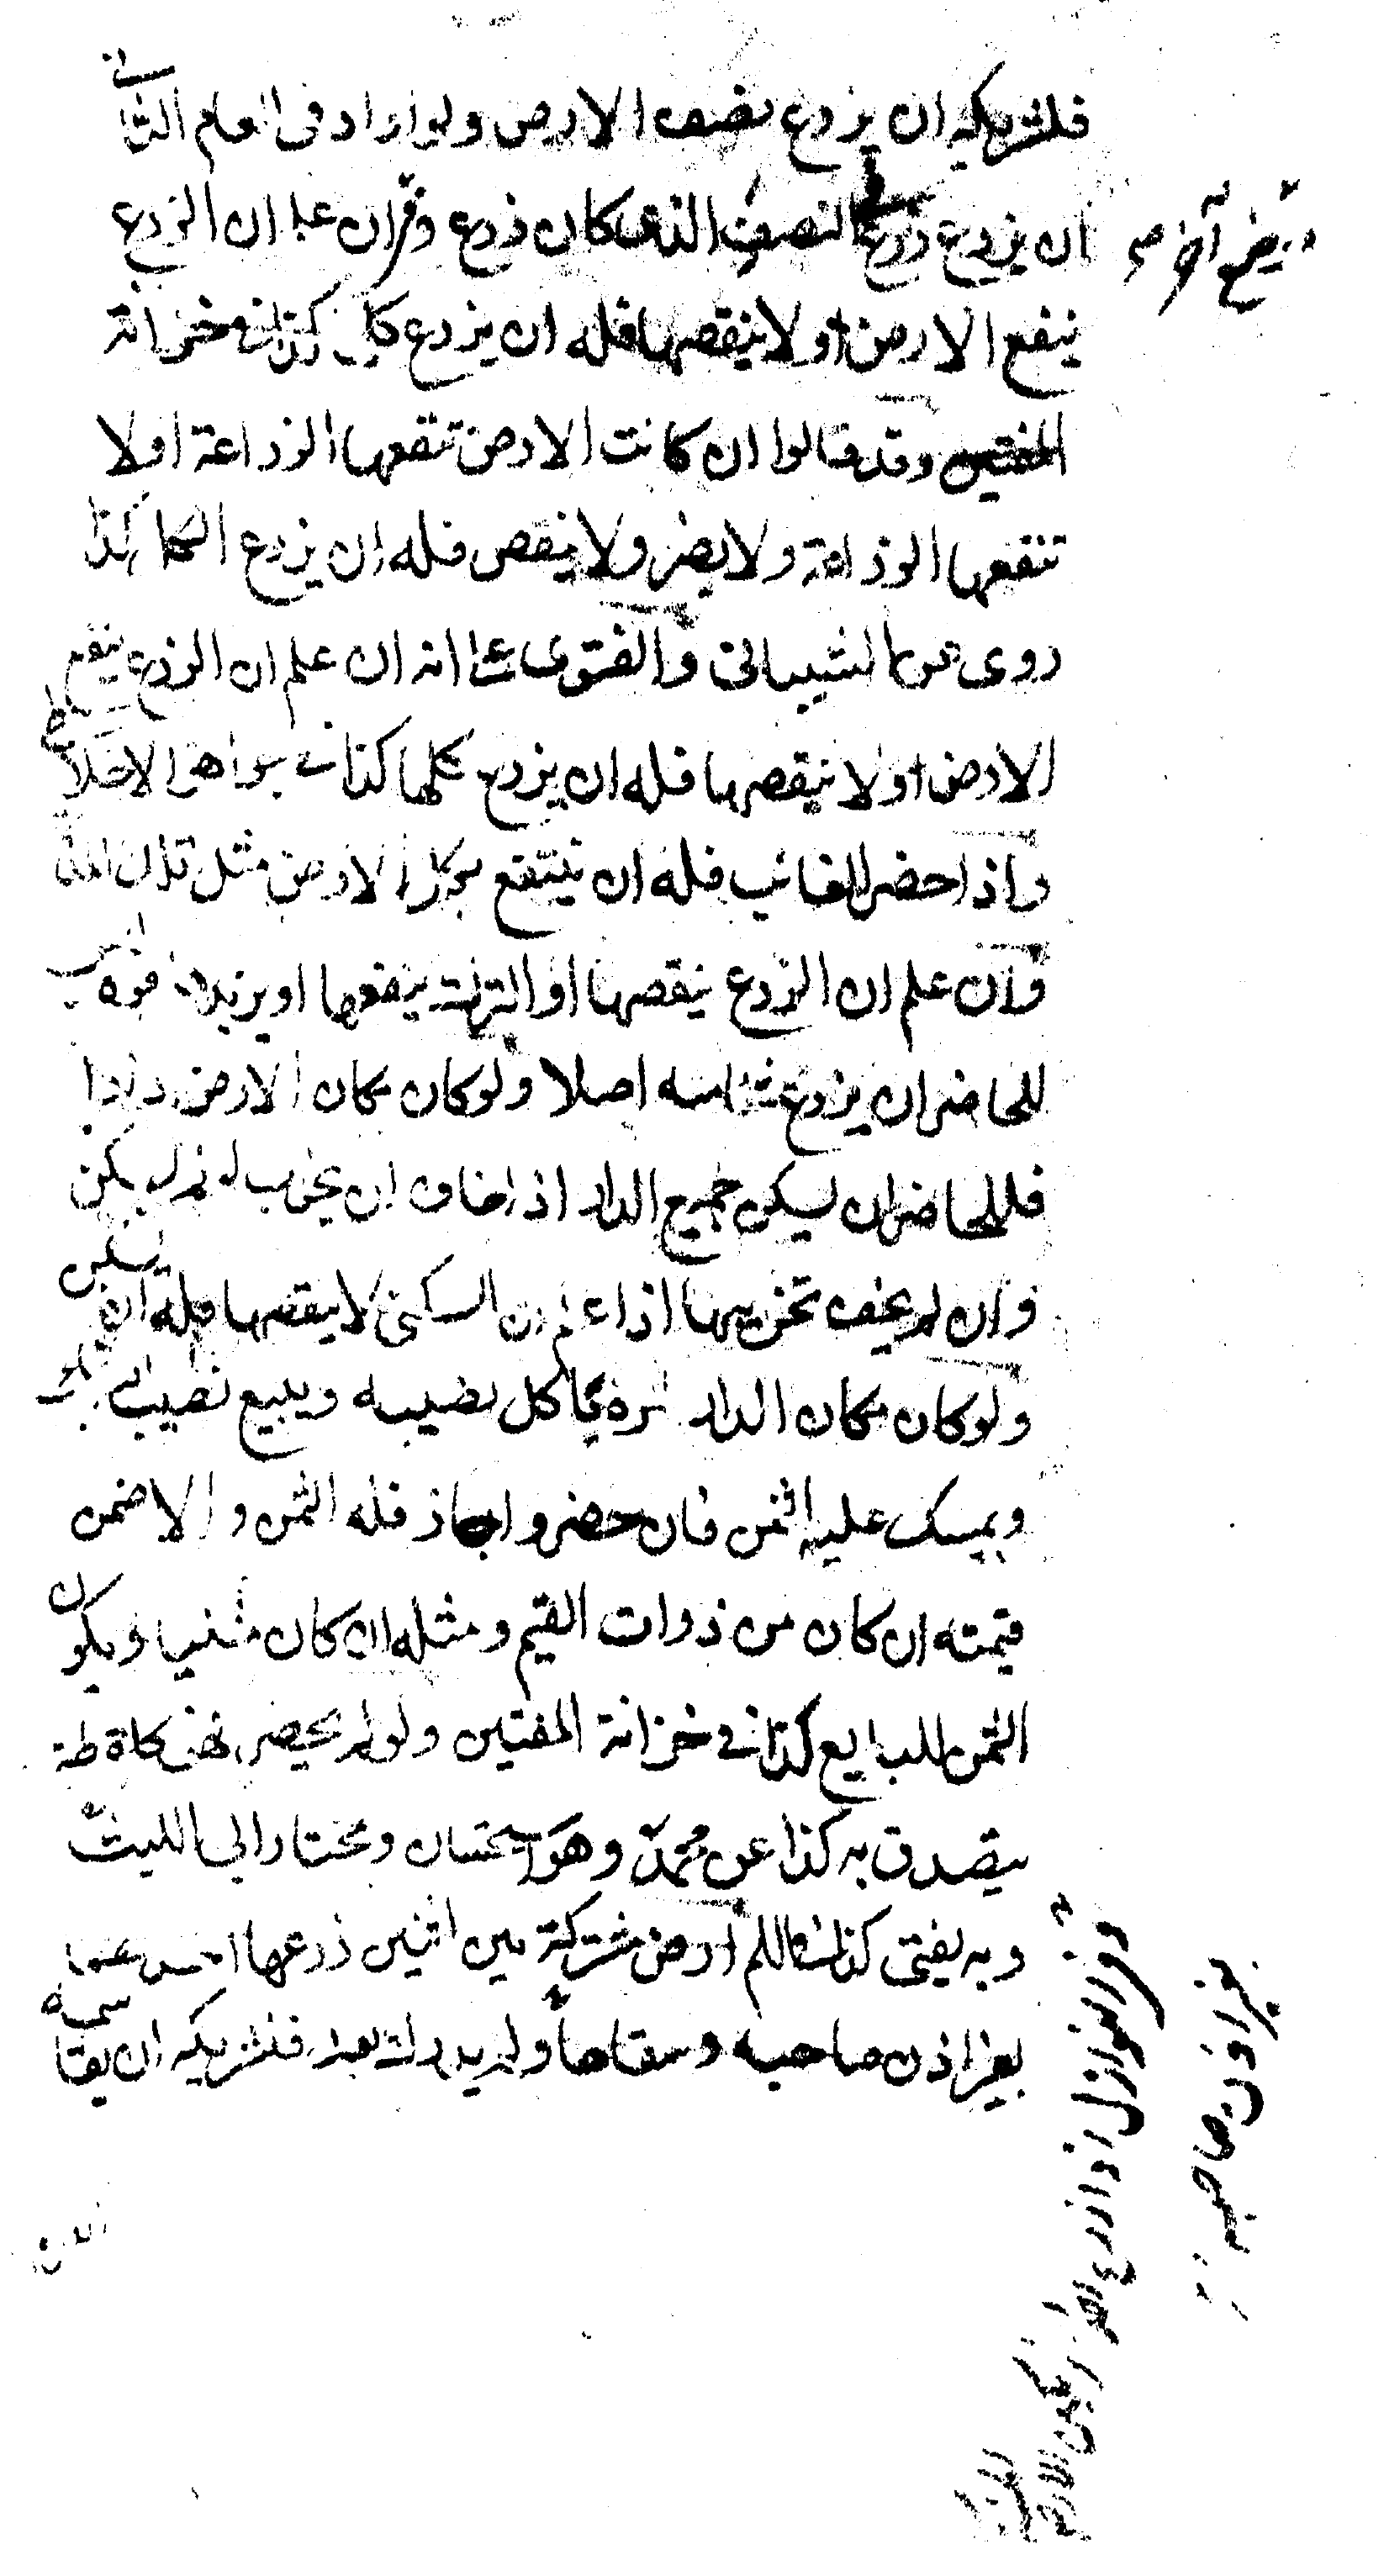 فلشريكه ان يزرع نصف الارض ولو اراد فى العام الثانى
ان يزرع زرع النصف الذى كان زرع وقران علم ان الزرع
ينفع الارض او لا ينقصها فله ان يزرع كل كذا فى خزانة
المفتيين وقد قالوا ان كانت الارض تنفعها الزراعة او لا
تنفعها الزراعة ولا يضر ولا ينقص فله ان يزرع الكل كذا
روى عن الشيبانى والفتوى على انه ان علم ان الزرع ينفع
الارض او لا ينقصها فله ان يزرع كلها كذا فى جواهر الاخلاطى
واذا حضر الغائب فله ان ينتفع بكل الارض مثل تلك المدة
وان علم ان الزرع ينقصها او الترك ينفعها او يزيد قوة ليس
للحاضر ان يزرع شيئا منه اصلا ولو كان مكان الارض دارا
فللحاضر ان يسكن جميع الدار اذا خاف ان يخرب لو لم يسكن
وان لم يخف تخريبها اذا علم ان السكنى لا ينقصها فله ان يسكن
ولو كان مكان الدار ثمرة ياكل نصيبه ويبيع نصيب الآخر
ويمسك عليه الثمن فان حضر واجاز فله الثمن والا ضمن
قيمته ان كان من ذوات القيم ومثله ان كان مثليا ويكون
الثمن للبايع كذا فى خزانة المفتين ولو لم يحضر فهى كلقطة
يتصدق به كذا عن محمد وهو استحسان ومختار ابى الليث
وبه يفتى كذا ارض مشتركة بين اثنين زرعها احدهما
بغير اذن صاحبه وسقاها ولم يدرك بعد فلشريكه ان يقاسمه
وفى النوازل اذا زرع
بغير اذن صاحبه